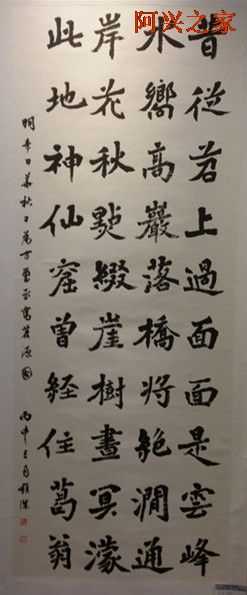 阿兴之家
昔從苕上過面面是雲峰
水嚮高巖落橋將絕澗通
岸花秋點綴崖樹晝冥濛
此地神仙窟曾經住葛翁
明李日華秋日為方 寫苕源圖 丙申